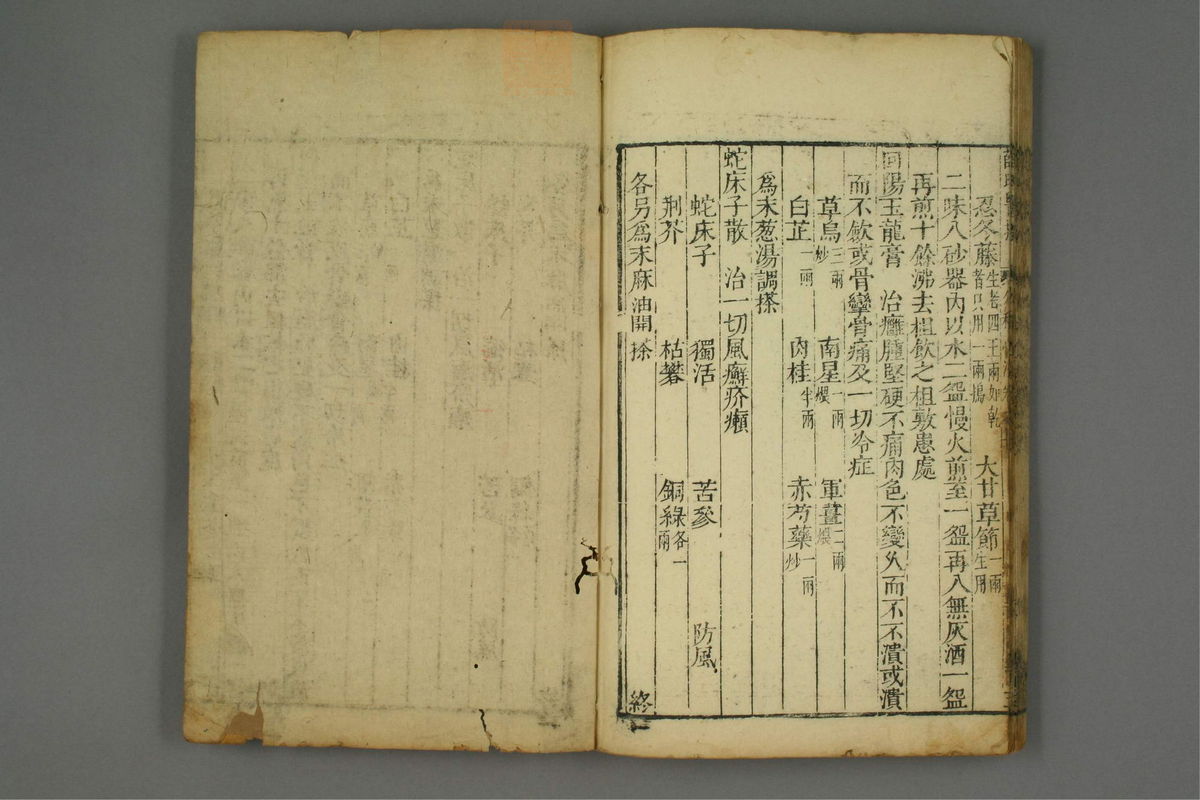 忍冬藤生者四五兩如乾者只用一兩搗 大甘草節一兩生用
二味入砂器內以水二盌慢火煎至一盌再入無灰酒一盌
再煎十餘沸去柤飲之柤敷患處
回陽玉龍膏 治癰腫堅硬不痛肉色不變久而不不潰或潰
而不飲或骨攣骨痛及一切冷症
草烏三兩炒 南星一兩煨 軍薑二兩煨
白芷一兩 肉桂半兩 赤芍藥一兩炒
爲末葱湯調搽
蛇床子散 治一切風癬疥癩
蛇床子 獨活 苦參 防風
荆芥 枯礬 銅綠各一兩
各另爲末麻油開搽 終